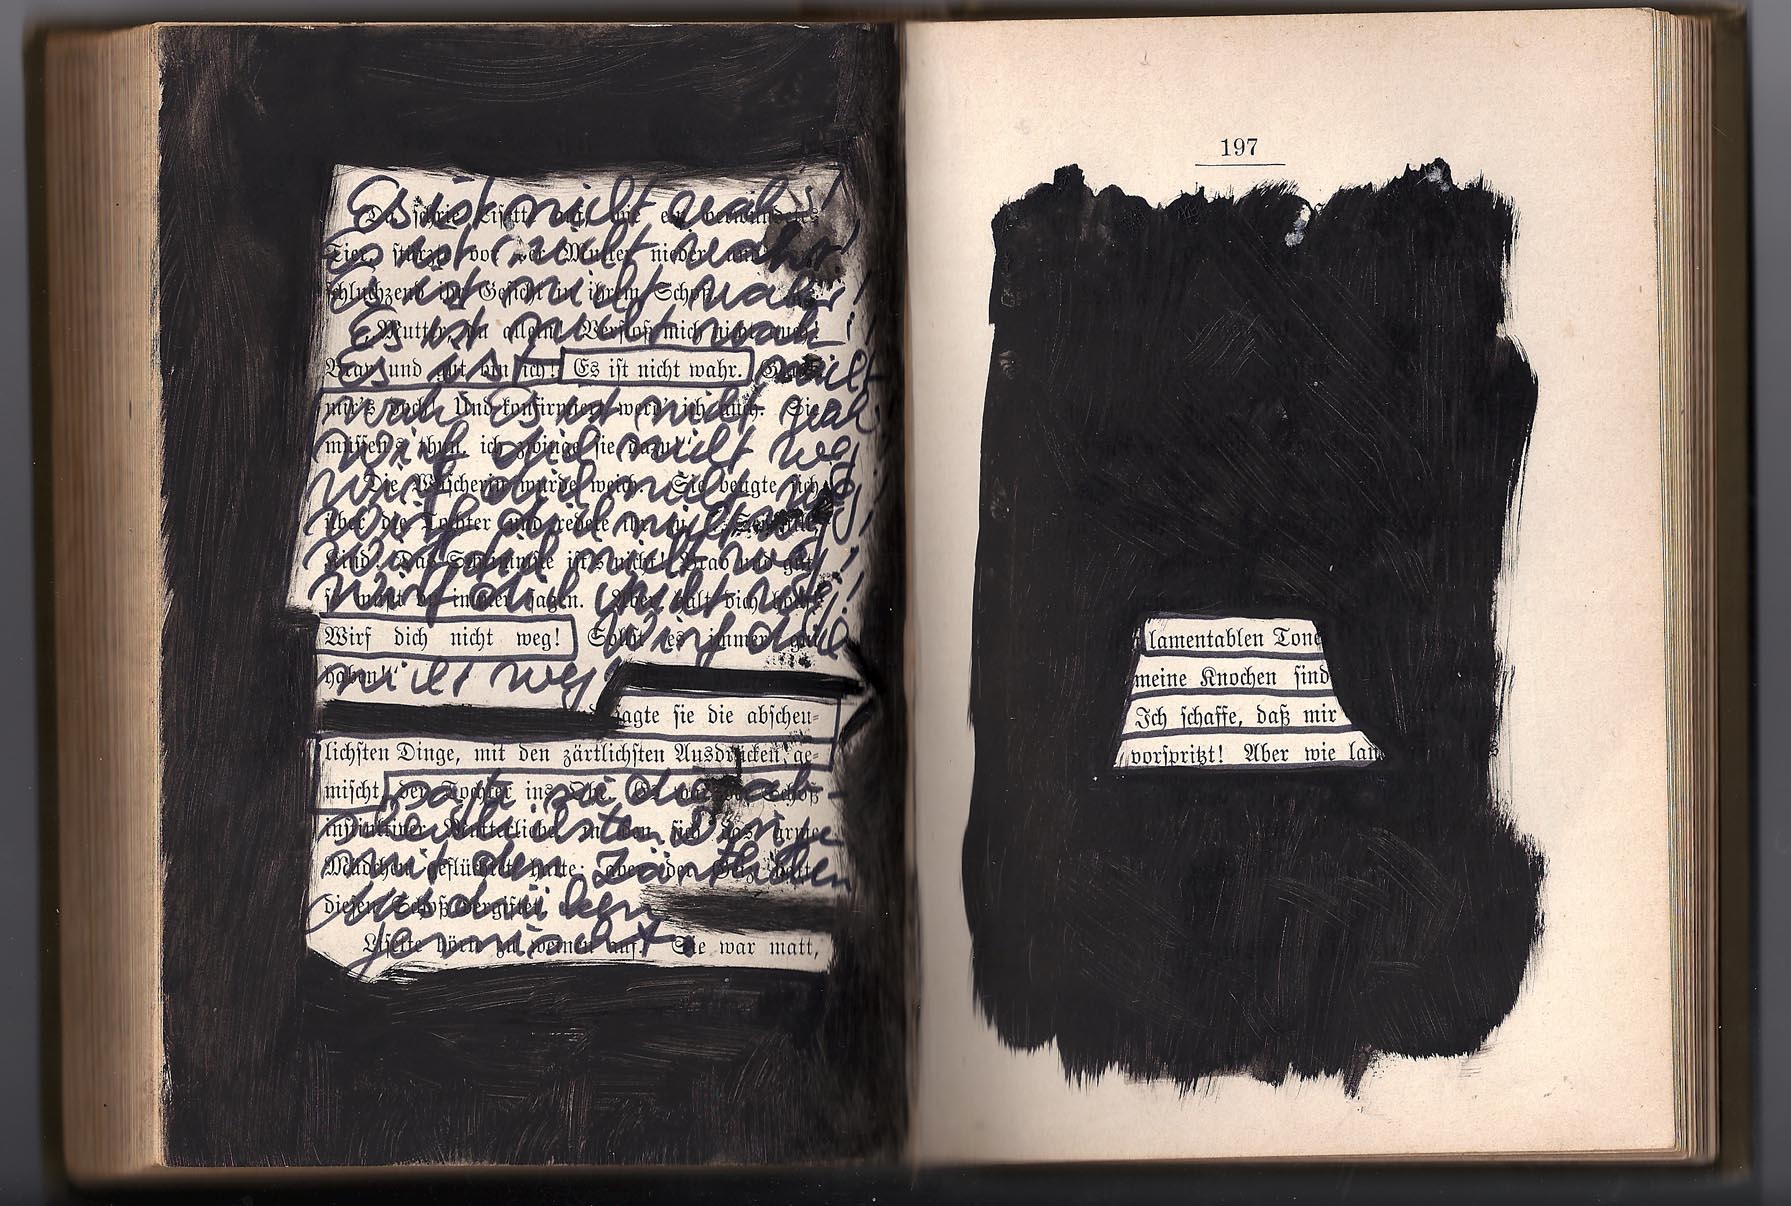 Es ist nicht wahr!
Da schrie Lisette auf, wie ein verwundetes
Es ist nicht wahr!
Tier, stürzte vor der Mutter nieder und
Es ist nicht wahr!
schluchzend ihr Gesicht in ihrem Schoß
Es ist nicht wahr!
„Mutter, du allein! Verstoß mich nicht auch!
Es ist nicht
Brav und gut bin ich! Es ist nicht wahr.
wahr Es ist nicht wahr
mir's doch. Und konfirmiert werd' ich auch. Sie
wirf dich nicht weg
müssen's thun, ich zwinge sie dazu!“
wirf dich nicht weg
Die Wäscherin wurde weich. Sie beugte sich
wirf dich nicht weg!
über die Tochter und redete ihr
wirf dich nicht weg!
Kind! Das Schlimmste ist's nicht! Brav und gut,
wirf dich nicht weg!
du immer sagen. Aber halt dich
Wirf dich nicht weg! Sollst es immer gut
Wirf dich
haben!“
nicht weg!
sagte sie die abscheu=
lichsten Dinge, mit den zärtlichsten Ausdrücken, ge=
mischt, der Tochter ins Ohr. Es war der Schoß
sagte sie die ab-
instinktiver Mutterliebe, in den sich das arme
scheulichsten Dinge
Mädchen geflüchtet hatte; aber der hatte
mit den zärtlichsten
diesen Schoß vergiftet.
Ausdrücken
Lisette hörte zu weinen auf. Sie war matt,
gemischt.
197
lamentablen Tone
meine Knochen sind
Ich schaffe, daß mir
vorspritzt! Aber wie lan